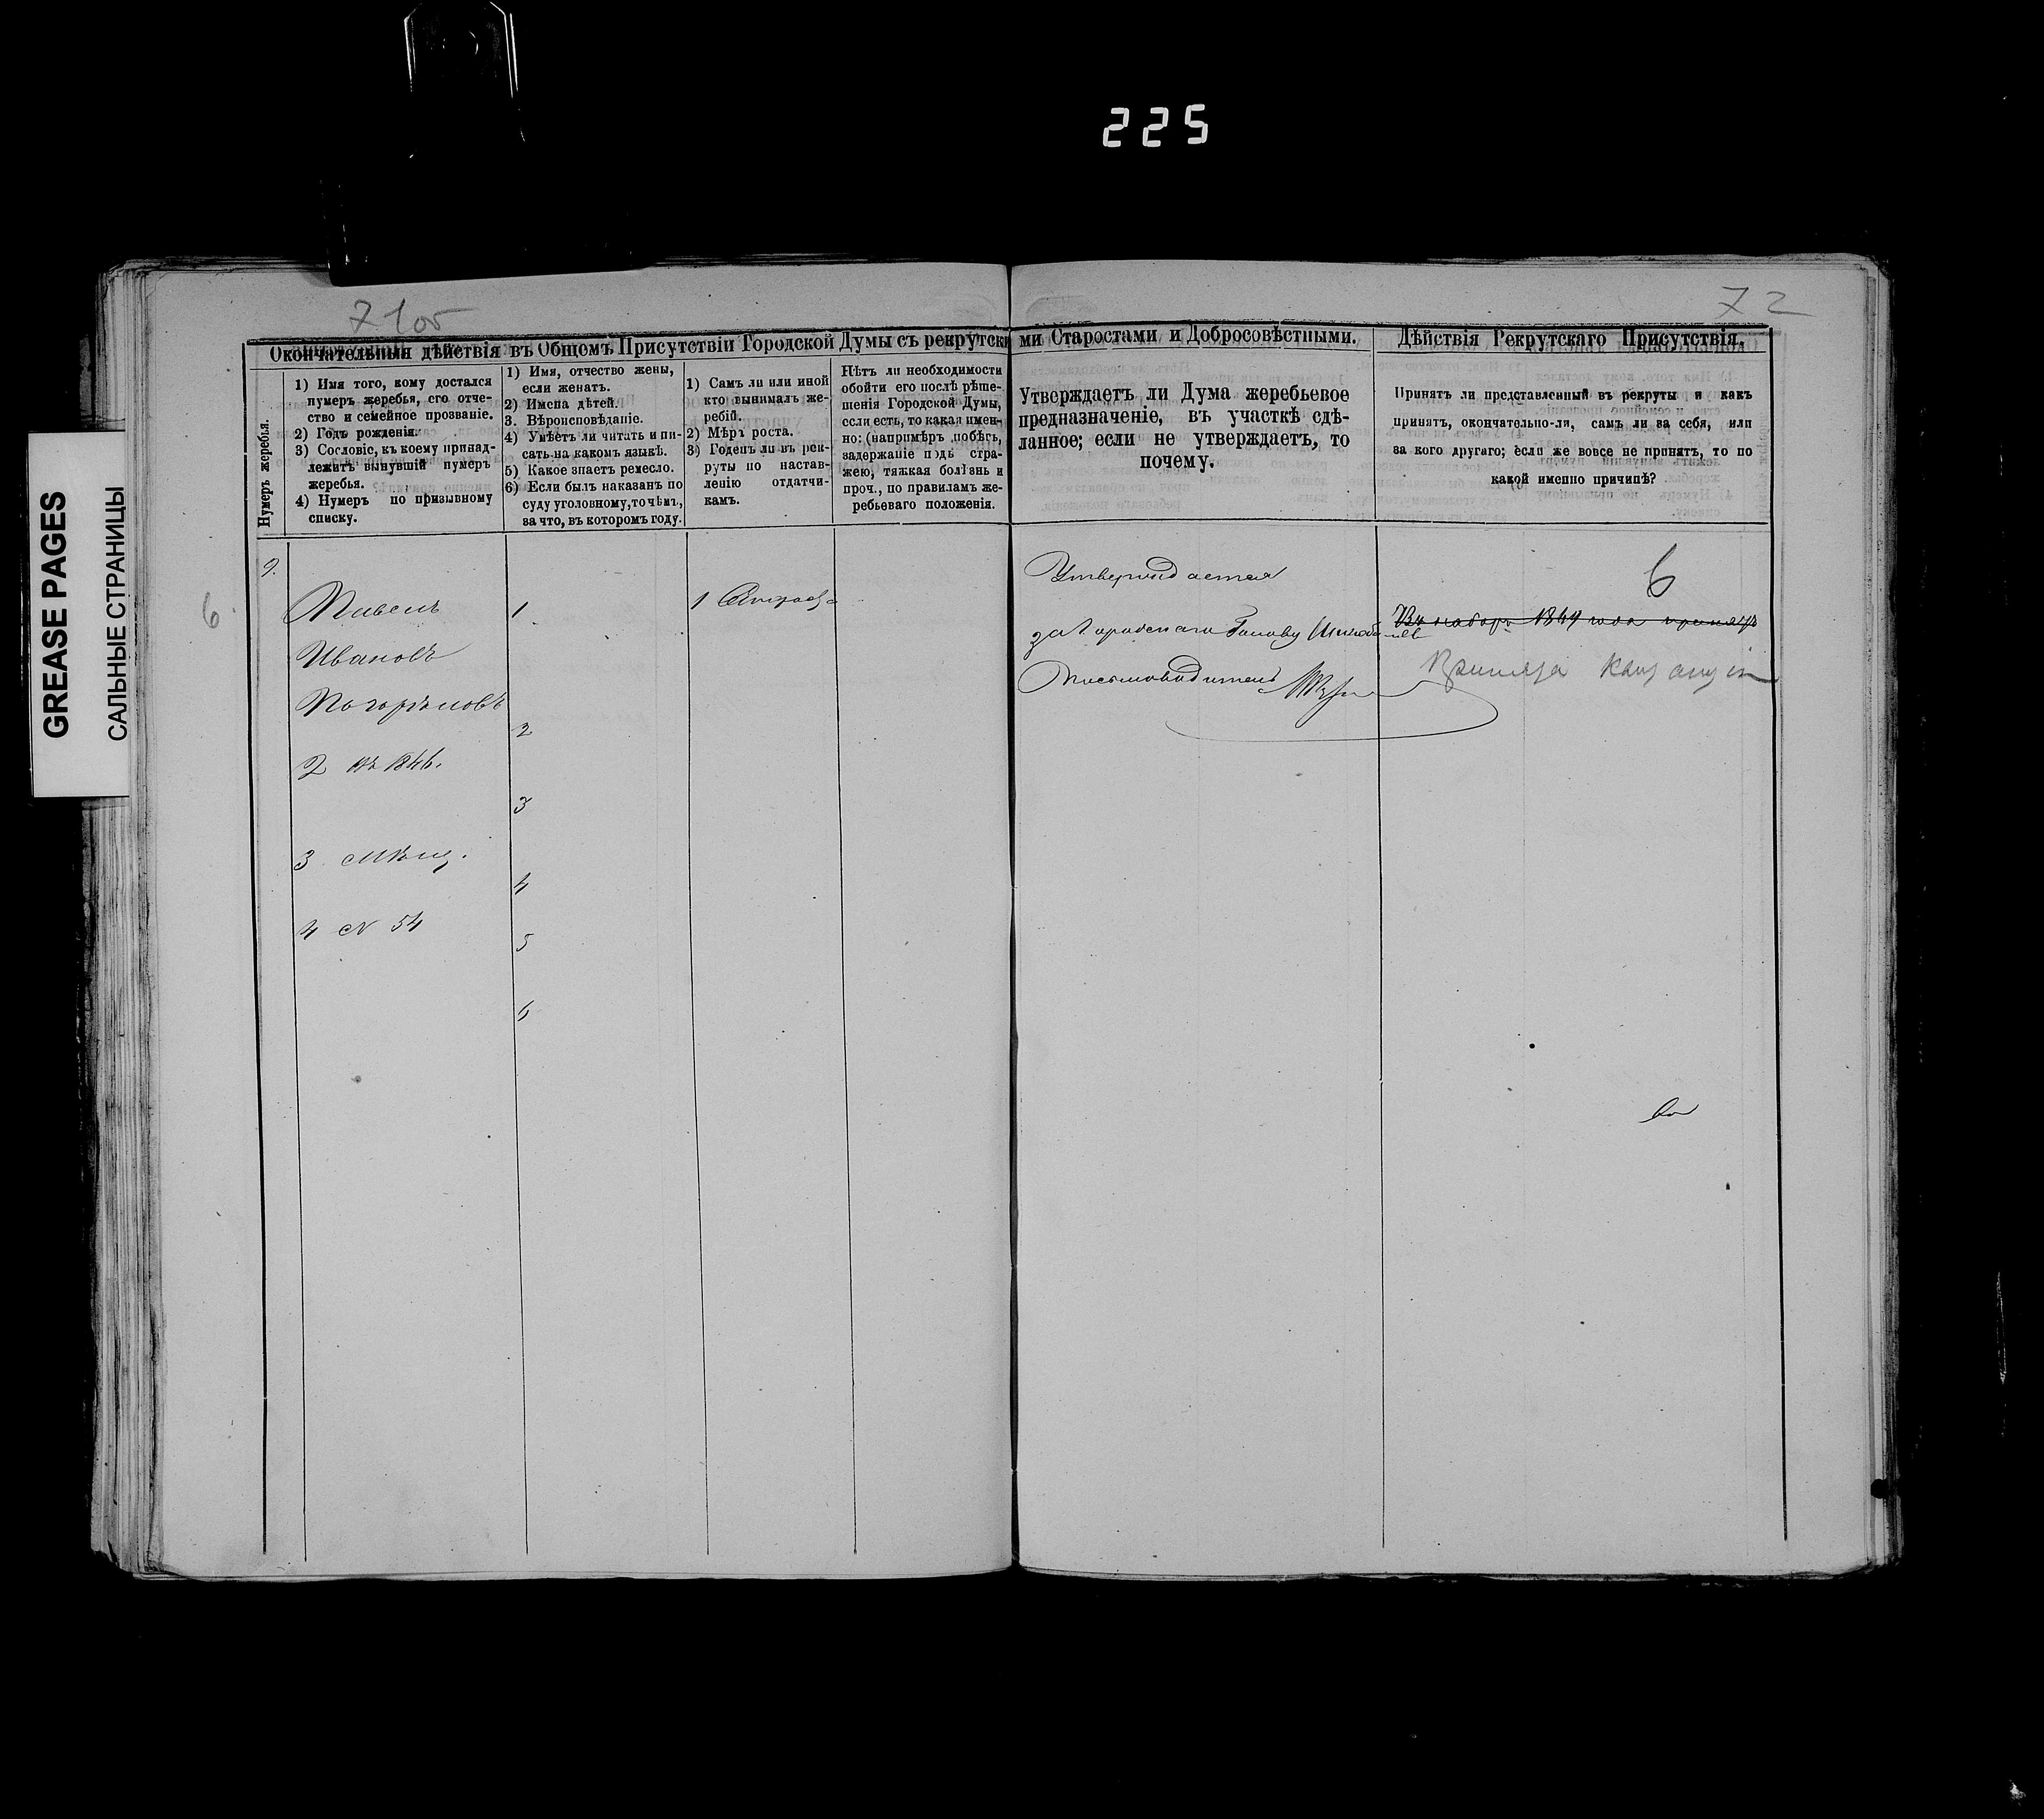 225
GREASE PAGES
САЛЬНЫЕ СТРАНИЦЫ
71об
72
Окончательныя дѣйствія въ Общемъ Присутствіи Городской Думы съ рекрутскими Старостами и Добросовѣстными.
Дѣйствія Рекрутскаго Присутствія.
Нумеръ жеребья.
1) Имя того, кому достался
нумеръ жеребья, его отче-
ство и семейное прозваніе.
2) Годъ рожденія.
3) Сословіе, къ коему принад-
лежитъ вынувшій нумеръ
жеребья.
4) Нумеръ по призывному
списку.
1) Имя, отчество жены,
если женатъ.
2) Имена дѣтей.
3. Вѣроисповѣданіе.
4) Умѣетъ ли читать и пи-
сать на какомъ языкѣ.
5) Какое знаетъ ремесло.
6) Если былъ наказанъ по
суду уголовному, то чѣмъ,
за что, въ которомъ году.
1) Самъ ли или иной
кто вынималъ же-
ребій.
2) Мѣръ роста.
3) Годенъ ли въ рек-
руты по настав-
ленію отдатчи-
камъ.
Нѣтъ ли необходимости
обойти его послѣ рѣше-
шенія Городской Думы,
если есть, то какая имен-
но: (напримѣръ побѣгъ,
задержаніе подъ стра-
жею, тяжкая болѣзнь и
проч., по правиламъ же-
ребьеваго положенія.
Утверждаетъ ли Дума жеребьевое
предназначеніе, въ участкѣ сдѣ-
ланное; если не утверждаетъ, то
почему.
Принятъ ли представленный въ рекруты и какъ
принятъ, окончательно-ли, самъ ли за себя, или
за кого другаго; если же вовсе не принятъ, то по
какой именно причинѣ?
9.
6.
Павелъ
Ивановъ
Погорѣловъ
2 въ 1846.
3 Мѣщ.
4 N 54
1
2
3
4
5
6
1
Утверждается
за Городскаго Голову
Письмоводитель
6
наборъ 1869 года принятъ